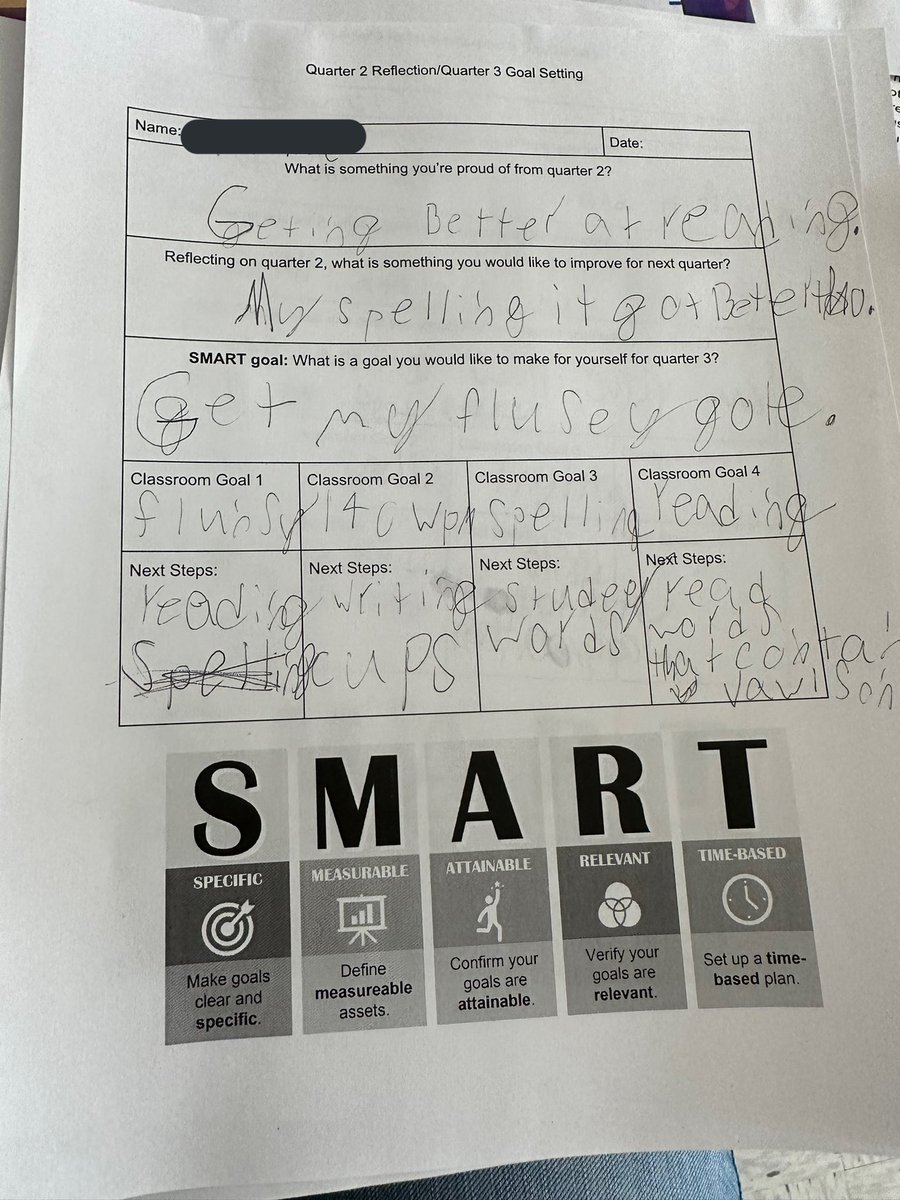 Quarter 2 Reflection/Quarter 3 Goal Setting
Name:
Date:
What is something you're proud of from quarter 2?
Geting Better at reading.
Reflecting on quarter 2, what is something you would like to improve for next quarter?
My spelling it got Beter too.
SMART goal: What is a goal you would like to make for yourself for quarter 3?
Get my flusey gole.
Classroom Goal 1
flunsy
Classroom Goal 2
140 wpm
Classroom Goal 3
spelling
Classroom Goal 4
reading
Next Steps:
reading
Next Steps:
writing
cups
Next Steps:
studeey
words
Next Steps:
read
words
that contain
vawl son
S M A R T
SPECIFIC
Make goals
clear and
specific.
MEASURABLE
Define
measureable
assets.
ATTAINABLE
Confirm your
goals are
attainable.
RELEVANT
Verify your
goals are
relevant.
TIME-BASED
Set up a time-
based plan.